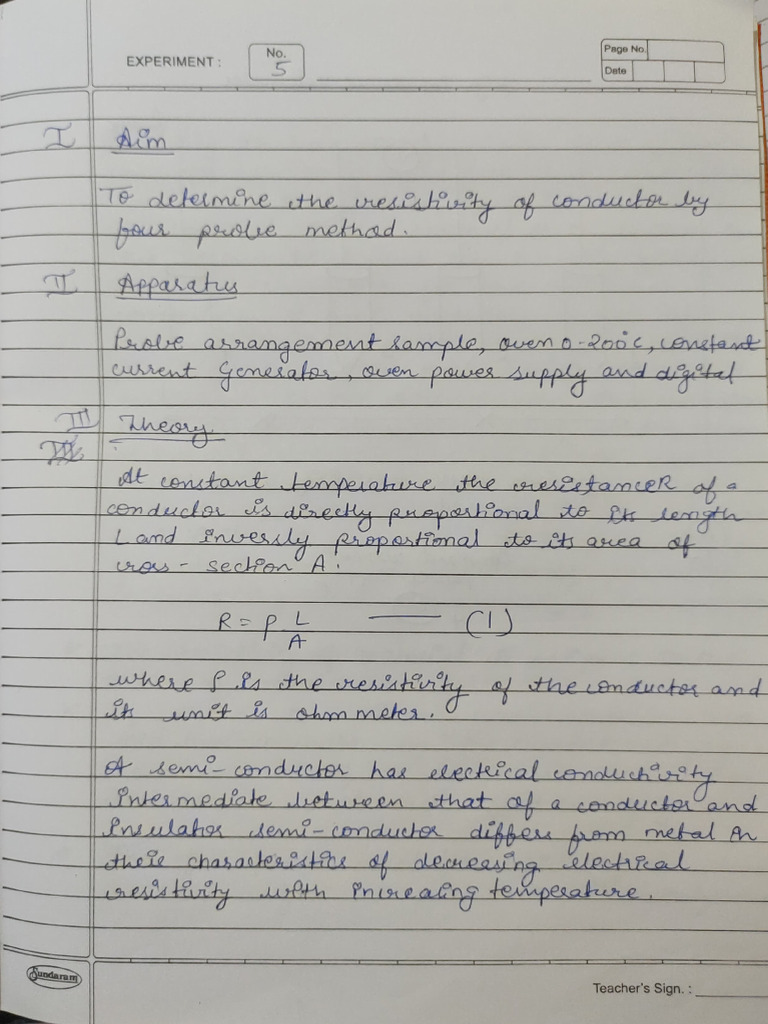 EXPERIMENT : No. 5
Page No.
Date
I Aim
To determine the resistivity of conductor by
four probe method.
II Apparatus
Probe arrangement sample, oven 0-200°C, constant
current Generator, oven power supply and digital
III Theory
At constant temperature the resistance R of a
conductor is directly proportional to its length
L and inversly proportional to its area of
cross-section A.
R = ρ L/A —— (1)
where ρ is the resistivity of the conductor and
its unit is ohm meter.
A semi-conductor has electrical conductivity
intermediate between that of a conductor and
insulator semi-conductor differs from metal in
their characteristics of decreasing electrical
resistivity with increaing temperature.
Sundaram
Teacher's Sign. :